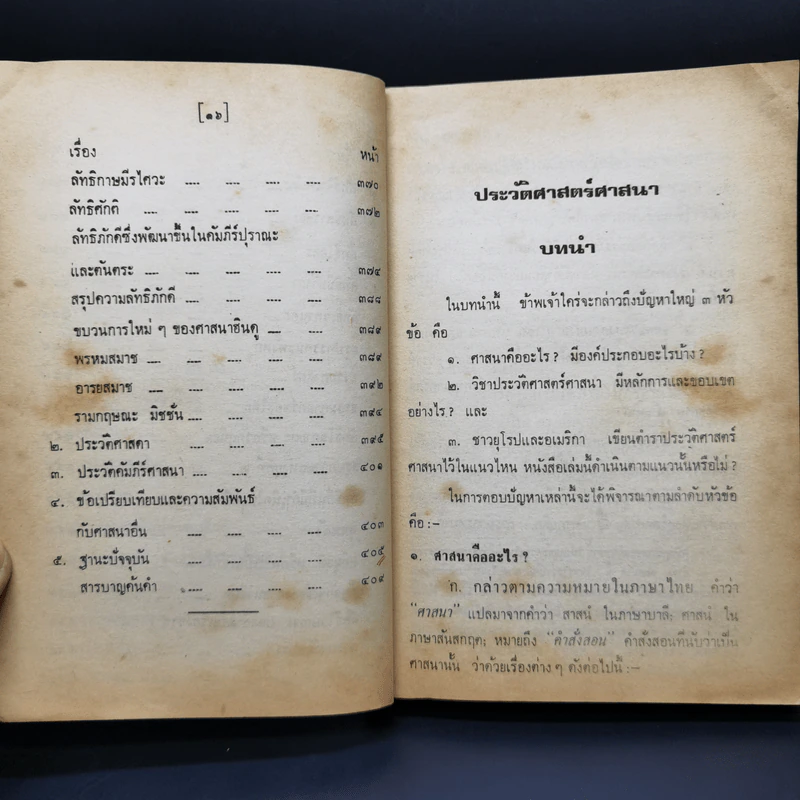 [๑๖]
เรื่อง หน้า
ลัทธิกาษมีรไศวะ .... .... .... .... ๓๗๐
ลัทธิศักติ .... .... .... .... ๓๗๒
ลัทธิภักดีซึ่งพัฒนาขึ้นในคัมภีร์ปุราณะ
และตันตระ .... .... .... .... ๓๗๔
สรุปความลัทธิภักดี .... .... .... ๓๘๘
ขบวนการใหม่ ๆ ของศาสนาฮินดู .... .... ๓๘๙
พรหมสมาช .... .... .... .... ๓๘๙
อารยสมาช .... .... .... .... ๓๙๒
รามกฤษณะ มิชชั่น .... .... .... ๓๙๔
๒. ประวัติศาสดา .... .... .... .... ๓๙๕
๓. ประวัติคัมภีร์ศาสนา .... .... .... ๔๐๑
๔. ข้อเปรียบเทียบและความสัมพันธ์
กับศาสนาอื่น .... .... .... .... ๔๐๓
๕. ฐานะปัจจุบัน .... .... .... .... ๔๐๕
สารบาญค้นคำ .... .... .... .... ๔๐๙
ประวัติศาสตร์ศาสนา
บทนำ
ในบทนำนี้ ข้าพเจ้าใคร่จะกล่าวถึงปัญหาใหญ่ ๓ หัว
ข้อ คือ
๑. ศาสนาคืออะไร ? มีองค์ประกอบอะไรบ้าง ?
๒. วิชาประวัติศาสตร์ศาสนา มีหลักการและขอบเขต
อย่างไร ? และ
๓. ชาวยุโรปและอเมริกา เขียนตำราประวัติศาสตร์
ศาสนาไว้ในแนวไหน หนังสือเล่มนี้ดำเนินตามแนวนั้นหรือไม่ ?
ในการตอบปัญหาเหล่านี้จะได้พิจารณาตามลำดับหัวข้อ
คือ :-
๑. ศาสนาคืออะไร ?
ก. กล่าวตามความหมายในภาษาไทย คำว่า
"ศาสนา" แปลมาจากคำว่า สาสนํ ในภาษาบาลี; ศาสนํ ใน
ภาษาสันสกฤต; หมายถึง "คำสั่งสอน" คำสั่งสอนที่นับว่าเป็น
ศาสนานั้น ว่าด้วยเรื่องต่าง ๆ ดังต่อไปนี้ :-